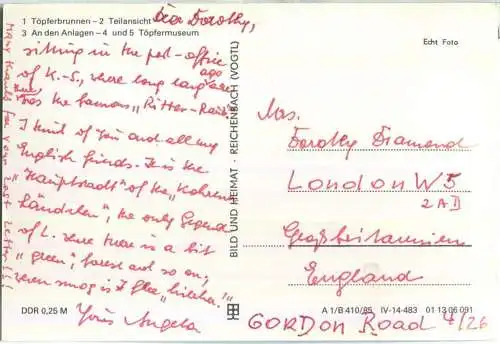 1 Töpferbrunnen – 2 Teilansicht
3 An den Anlagen – 4 und 5 Töpfermuseum
Echt Foto
Dear Dorothy,
sitting in the post-office
of K.-S., where long long ago
was the famous „Ritter-
I think of You and all my
English friends. It is the
„Hauptstadt“ of the „Kohrener
Ländchen“, the only
of L. where there is a bit
„green“, forest and so on,
even smog is
Yours Angela
Many thanks for your last letter!!!
DDR 0,25 M
BILD UND HEIMAT · REICHENBACH (VOGTL)
Mrs.
Dorothy Diamond
London W5
2AD
Großbritannien
England
A 1/B 410/85 IV-14-483 01 13 06 091
GORDON ROAD 4/26